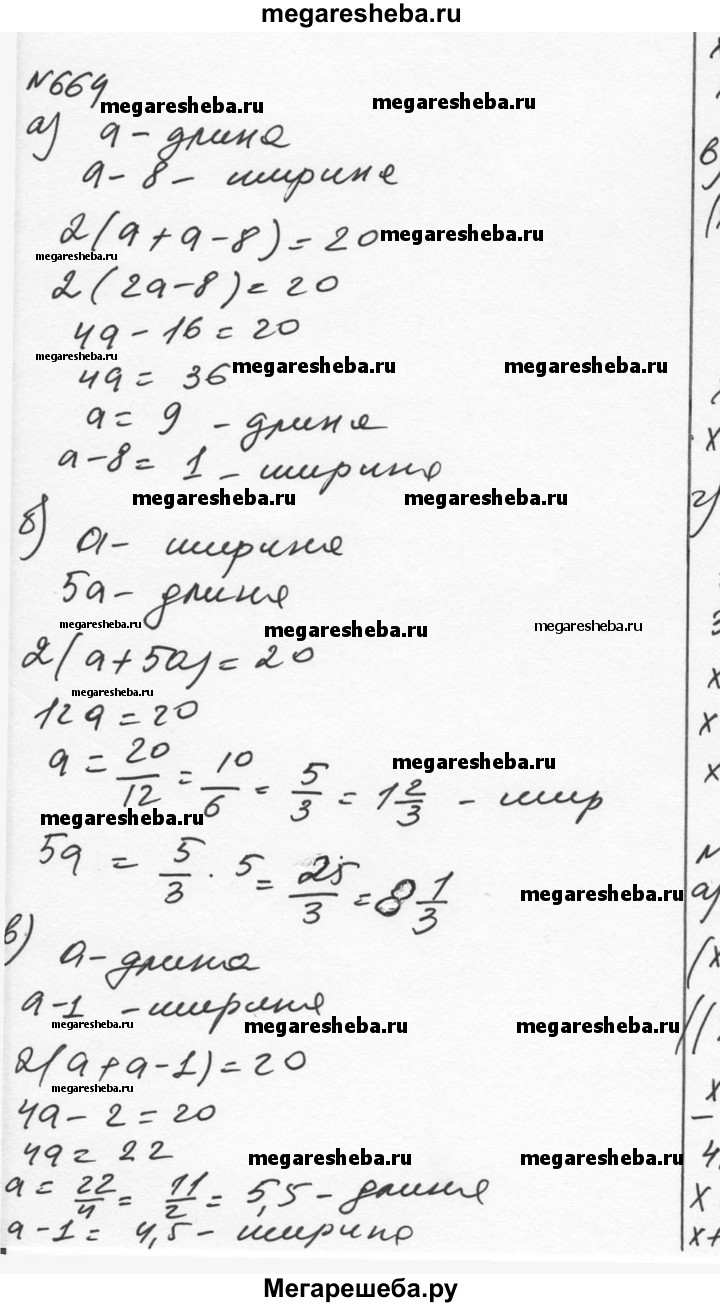 megaresheba.ru
№664
megaresheba.ru megaresheba.ru
а) a - длина
a - 8 - ширина
2(a + a - 8) = 20 megaresheba.ru
megaresheba.ru
2(2a - 8) = 20
4a - 16 = 20
megaresheba.ru
4a = 36 megaresheba.ru megaresheba.ru
a = 9 - длина
a - 8 = 1 - ширина
megaresheba.ru megaresheba.ru
б) a - ширина
5a - длина
megaresheba.ru megaresheba.ru
2(a + 5a) = 20
megaresheba.ru
12a = 20
a = 20/12 = 10/6 = 5/3 = 1 2/3 - шир
megaresheba.ru
megaresheba.ru
5a = 5/3 · 5 = 25/3 = 8 1/3
megaresheba.ru
в) a - длина
a - 1 - ширина
megaresheba.ru megaresheba.ru megaresheba.ru
2(a + a - 1) = 20
megaresheba.ru
4a - 2 = 20
4a = 22
megaresheba.ru megaresheba.ru
a = 22/4 = 11/2 = 5,5 - длина
a - 1 = 4,5 - ширина
Мегарешеба.ру